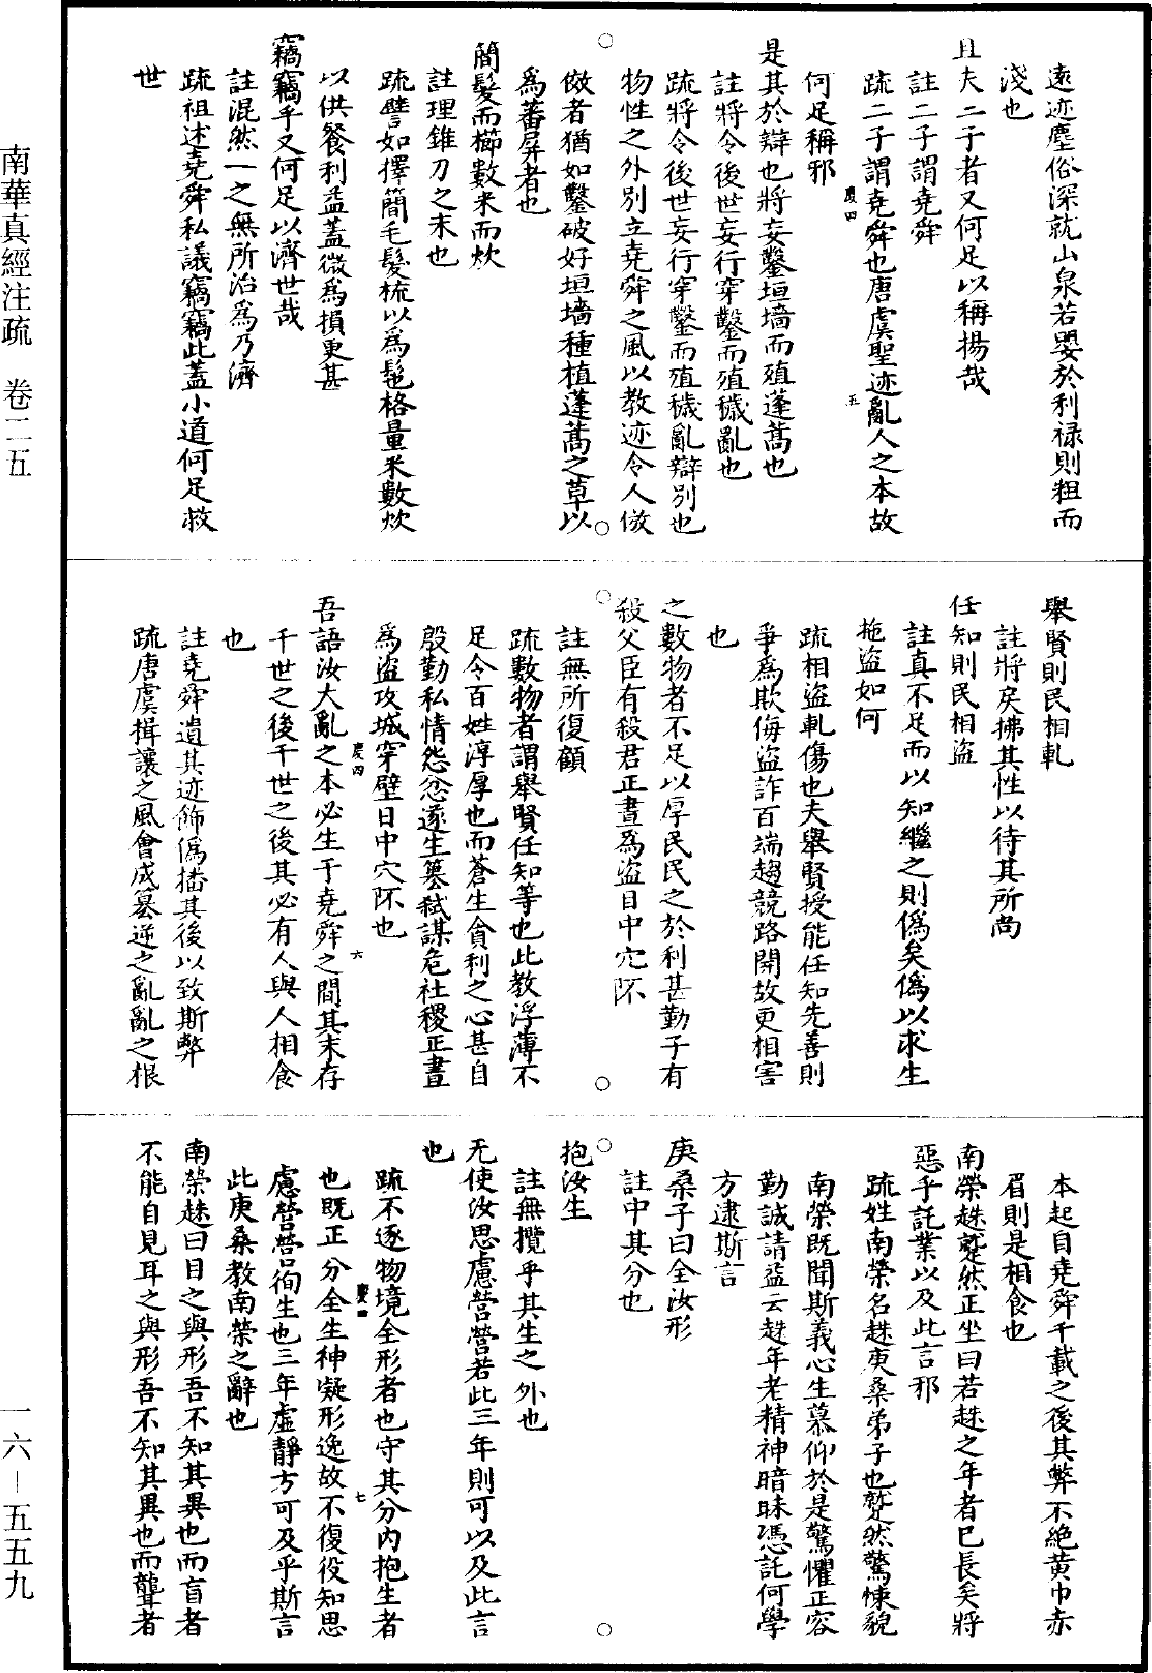 遠迹塵俗深就山泉若嬰於利祿則粗而
淺也
且夫二子者又何足以稱揚哉
註二子謂堯舜
疏二子謂堯舜也唐虞聖迹亂人之本故
何足稱邪
慶四
五
是其於辯也將妄鑿垣墻而殖蓬蒿也
註將令後世妄行穿鑿而殖穢亂也
疏將令後世妄行穿鑿而殖穢亂辯別也
物性之外別立堯舜之風以教迹令人倣
倣者猶如鑿破好垣墻種植蓬蒿之草以
為蕃屏者也
簡髮而櫛數米而炊
註理錐刀之末也
疏譬如擇簡毛髮梳以為髢格量米數炊
以供餐利益蓋微為損更甚
竊竊乎又何足以濟世哉
註混然一之無所治為乃濟
疏祖述堯舜私議竊竊此蓋小道何足救
世
舉賢則民相軋
註將戾拂其性以待其所尚
任知則民相盜
註真不足而以知繼之則偽矣偽以求生
拖盜如何
疏相盜軋傷也夫舉賢授能任知先善則
爭為欺侮盜詐百端趨競路開故更相害
也
之數物者不足以厚民民之於利甚勤子有
殺父臣有殺君正晝為盜日中穴阫
註無所復顧
疏數物者謂舉賢任知等也此教浮薄不
足令百姓淳厚也而蒼生貪利之心甚自
殷勤私情怨忿遂生篡弒謀危社稷正晝
為盜攻城穿壁日中穴阫也
慶四
六
吾語汝大亂之本必生于堯舜之間其末存
千世之後千世之後其必有人與人相食
也
註堯舜遺其迹飾偽播其後以致斯弊
疏唐虞揖讓之風會成篡逆之亂亂之根
本起自堯舜千載之後其弊不絕黃巾赤
眉則是相食也
南榮趎蹵然正坐曰若趎之年者已長矣將
惡乎託業以及此言邪
疏姓南榮名趎庚桑弟子也蹵然驚悚貌
南榮既聞斯義心生慕仰於是驚懼正容
勤誠請益云趎年老精神暗昧憑託何學
方逮斯言
庚桑子曰全汝形
註中其分也
抱汝生
註無攬乎其生之外也
无使汝思慮營營若此三年則可以及此言
也
疏不逐物境全形者也守其分內抱生者
也既正分全生神凝形逸故不復役知思
慶四
七
慮營營徇生也三年虛靜方可及乎斯言
此庚桑教南榮之辭也
南榮趎曰目之與形吾不知其異也而盲者
不能自見耳之與形吾不知其異也而聾者
南華真經注疏 卷二五
一六－五五九